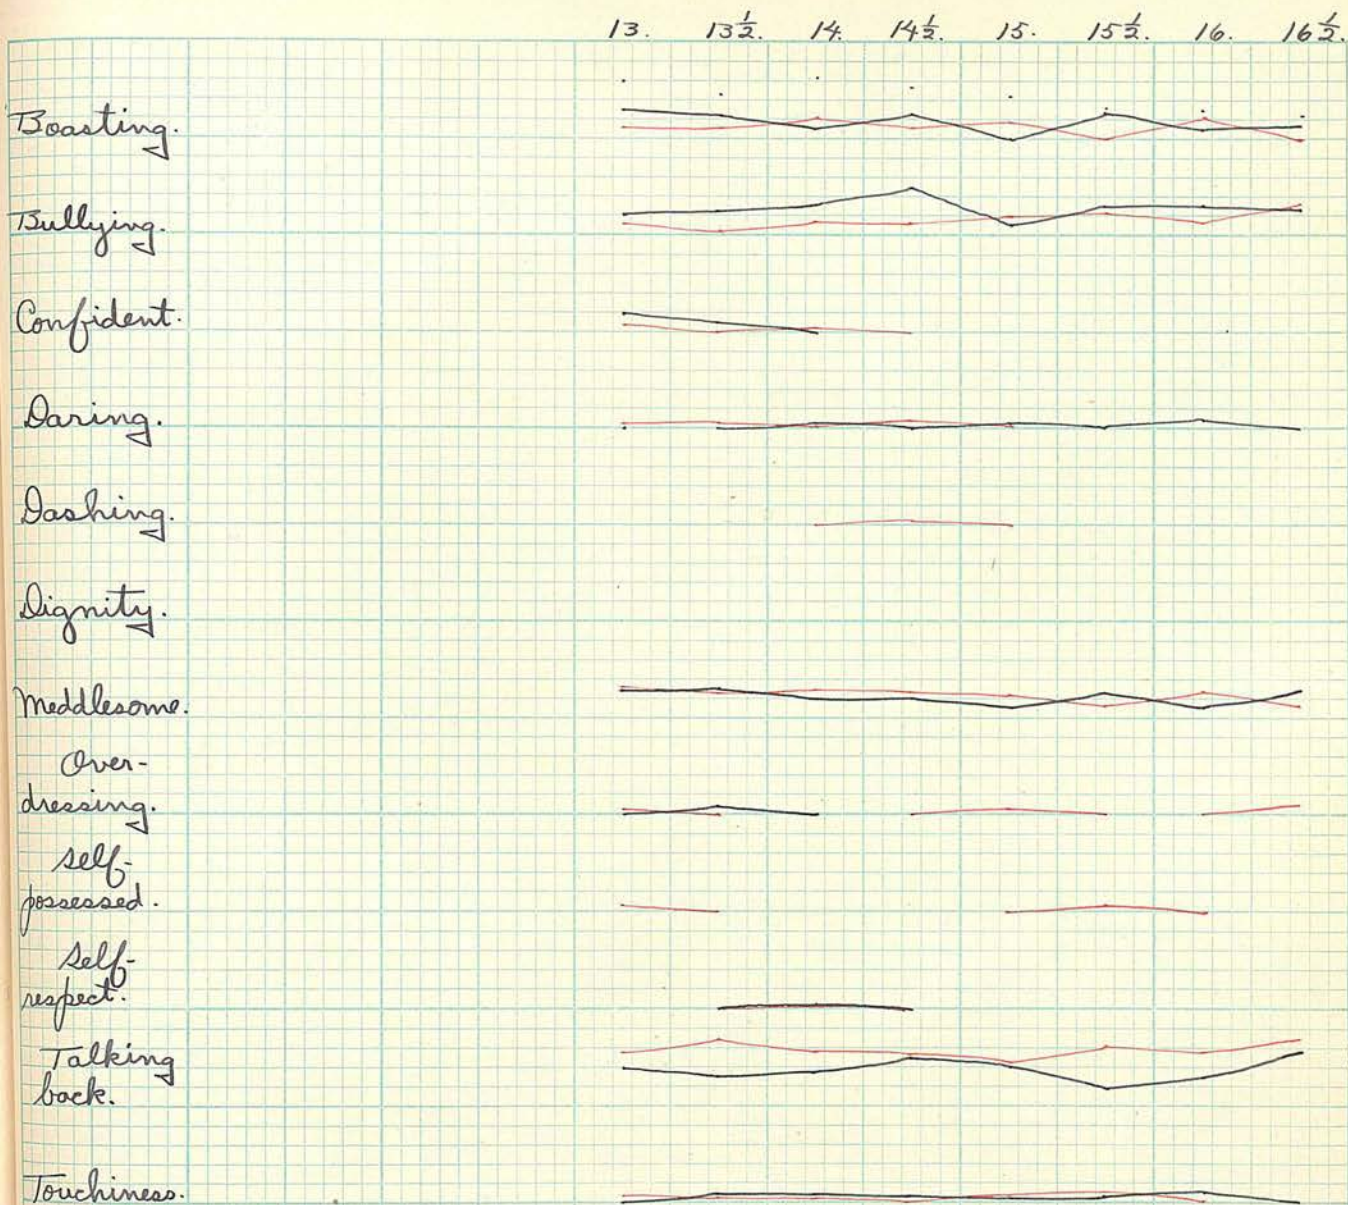 13. 13½. 14. 14½. 15. 15½. 16. 16½.
Boasting.
Bullying.
Confident.
Daring.
Dashing.
Dignity.
Meddlesome.
Over-
dressing.
Self-
possessed.
Self-
respect.
Talking
back.
Touchiness.